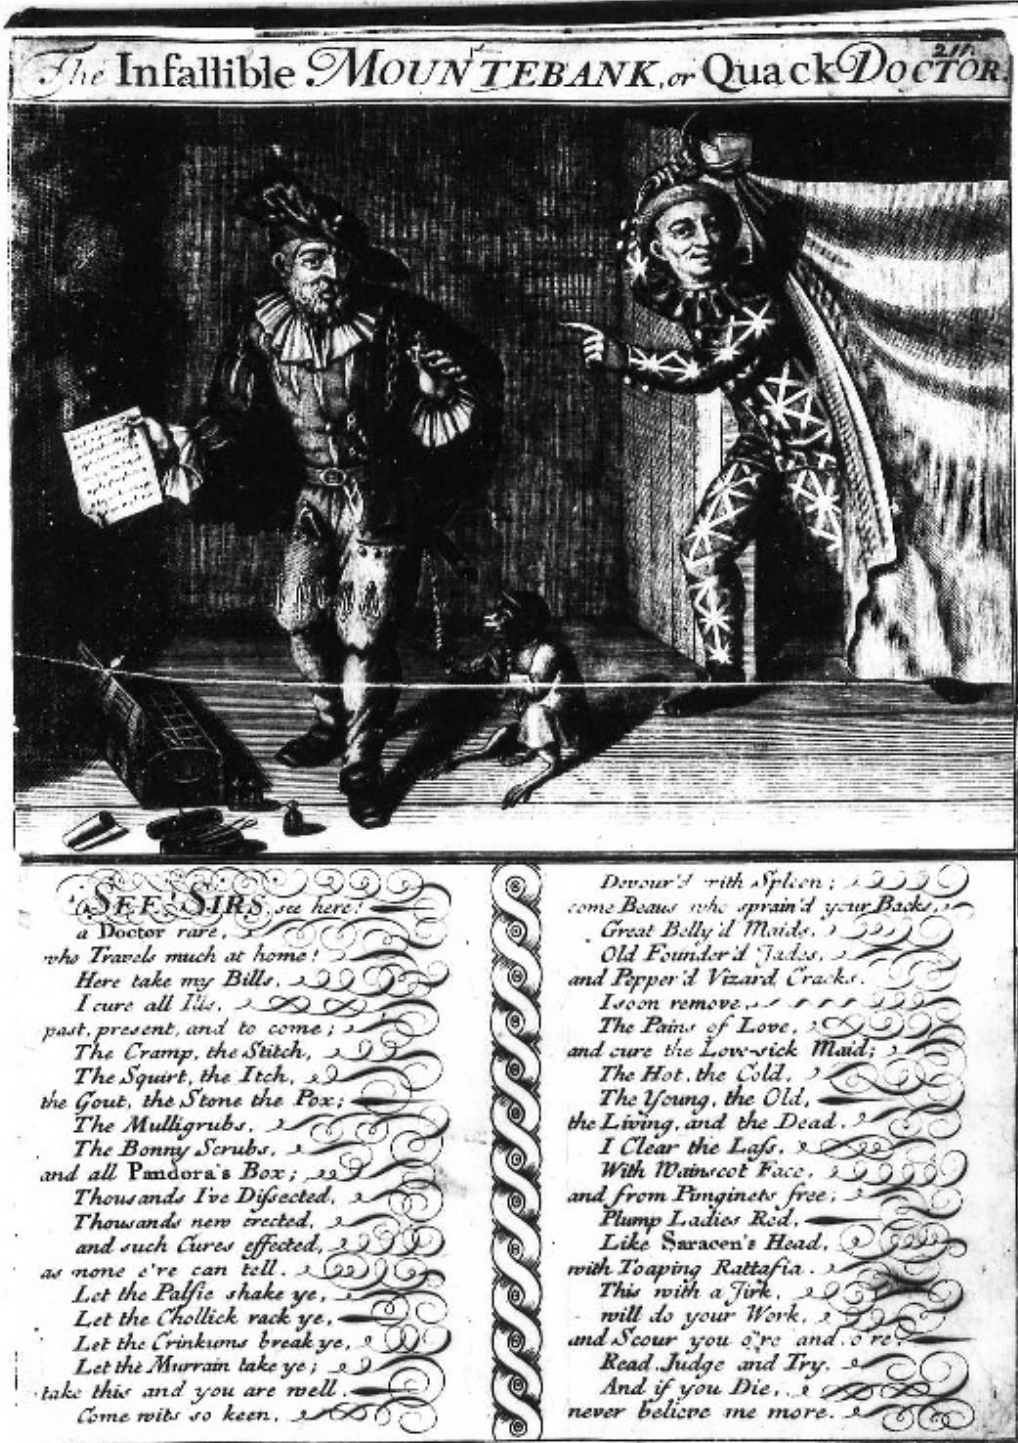 The Infallible MOUNTEBANK, or Quack DOCTOR.
211.
SEE SIRS, see here!
a Doctor rare,
who Travels much at home!
Here take my Bills,
I cure all Ills,
past, present, and to come;
The Cramp, the Stitch,
The Squirt, the Itch,
the Gout, the Stone the Pox;
The Mulligrubs,
The Bonny Scrubs,
and all Pandora's Box;
Thousands I've Dissected,
Thousands new erected,
and such Cures effected,
as none e're can tell.
Let the Palsie shake ye,
Let the Chollick rack ye,
Let the Crinkums break ye,
Let the Murrain take ye;
take this and you are well.
Come wits so keen,
Devour'd with Spleen;
come Beaus who sprain'd your Backs,
Great Belly'd Maids,
Old Founder'd Jades,
and Pepper'd Vizard Cracks.
I soon remove
The Pains of Love,
and cure the Love-sick Maid;
The Hot, the Cold,
The Young, the Old,
the Living, and the Dead.
I Clear the Lass,
With Wainscot Face,
and from Pimginets free;
Plump Ladies Red,
Like Saracen's Head,
with Toaping Rattafia.
This with a Jirk,
will do your Work,
and Scour you o're and o're,
Read Judge and Try.
And if you Die,
never believe me more.